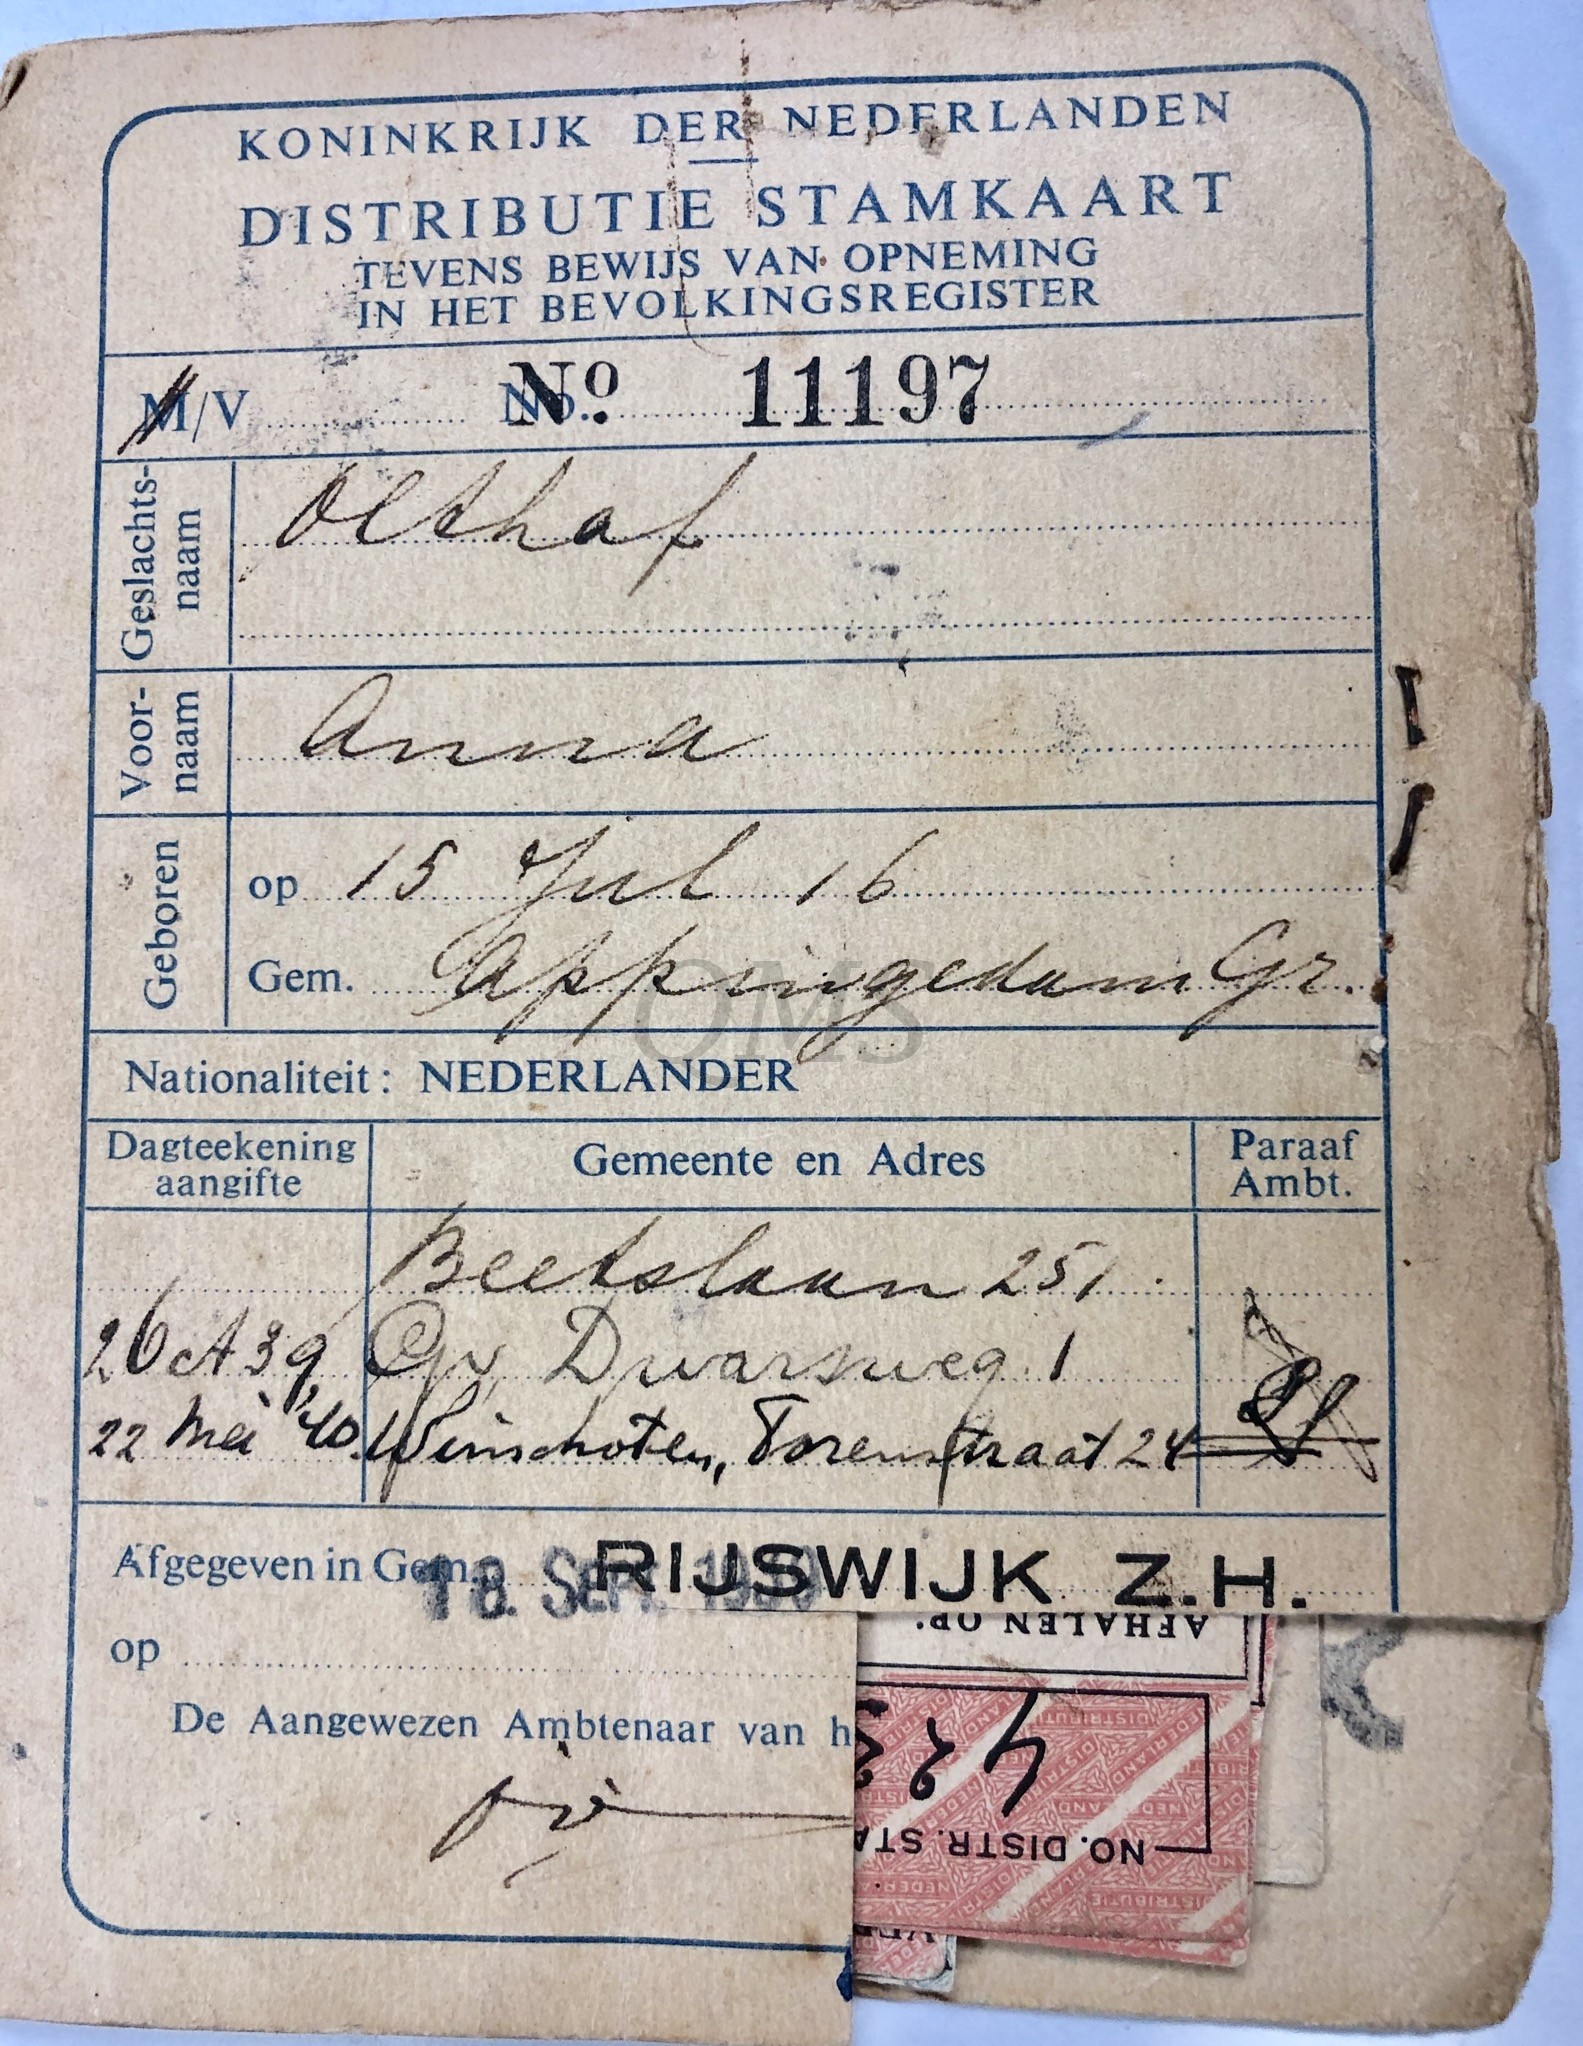 KONINKRIJK DER NEDERLANDEN
DISTRIBUTIE STAMKAART
TEVENS BEWIJS VAN OPNEMING
IN HET BEVOLKINGSREGISTER
M/V No. Nº 11197
Geslachts-
naam
Olthof
Voor-
naam
Anna
Geboren
op 15 Jul 16
Gem. Appingedam Gr.
OMS
Nationaliteit: NEDERLANDER
Dagteekening
aangifte
Gemeente en Adres
Paraaf
Ambt.
Beetslaan 251.
26 oct 39, Dwarsweg 1
22 Mei '40. Winschoten, Torenstraat 24
Afgegeven in Gem. RIJSWIJK Z.H.
18. SEP.
op
De Aangewezen Ambtenaar van h
AFHALEN OP:
422
NO. DISTR. STA